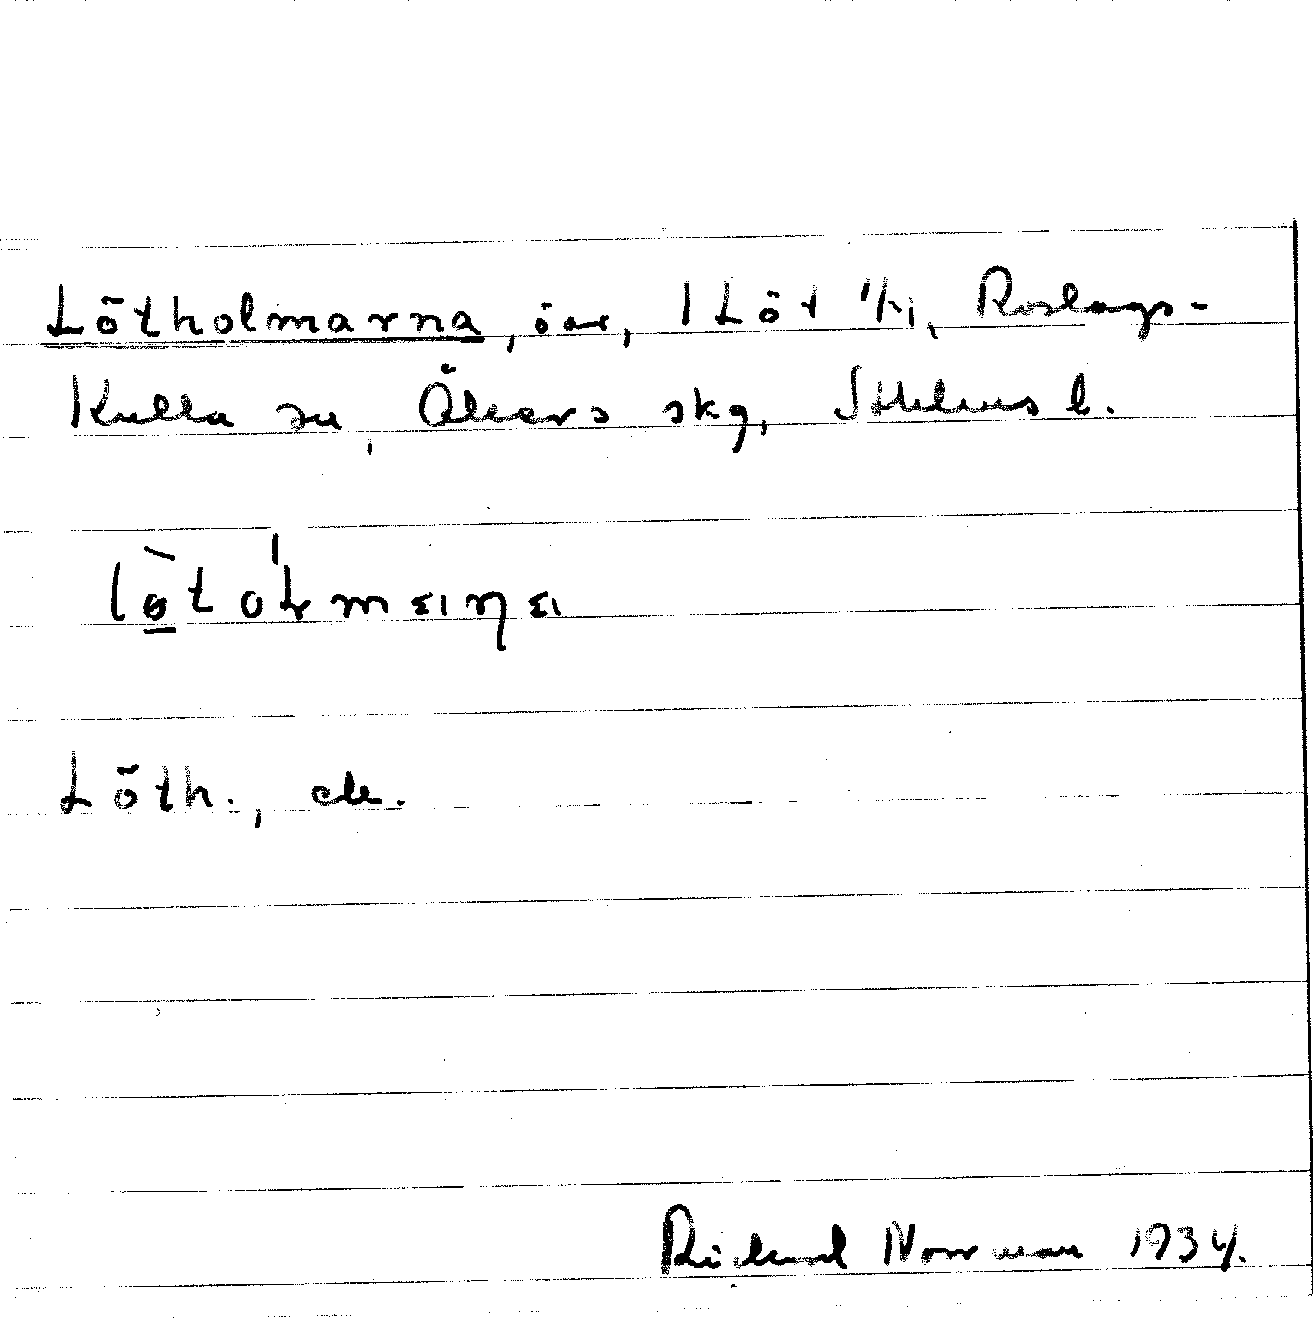 Lötholmarna, öar, 1 Löt 1/1, Roslags-
Kulla sn, Åkers skg, Sthlms l.
Löth., ek.
Rickard Norrman 1934.